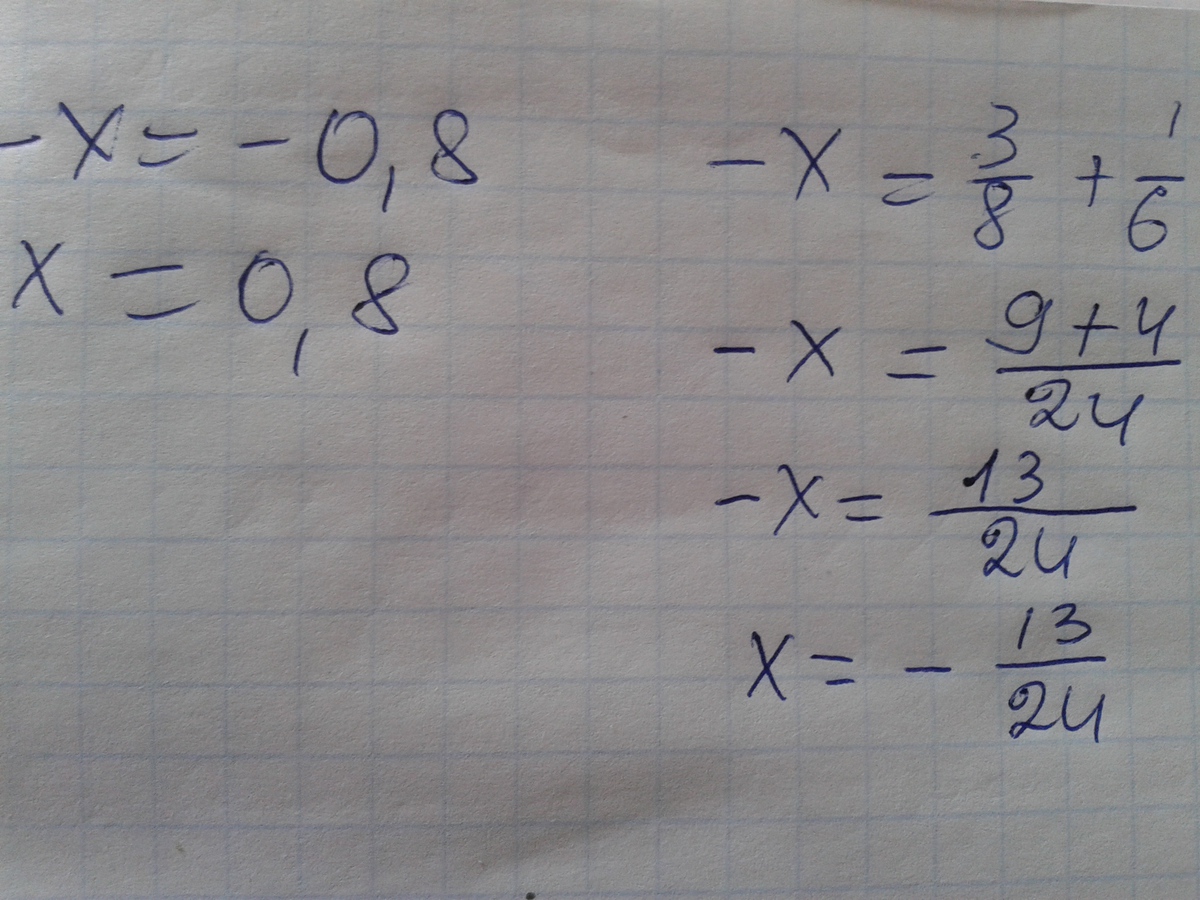 -x = -0,8
x = 0,8
-x = 3/8 + 1/6
-x = (9+4)/24
-x = 13/24
x = - 13/24